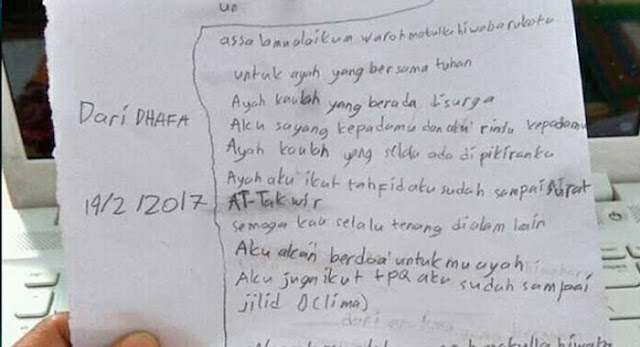 un
assalamualaikum warohmatullahiwabarukatu
untuk ayah yang bersama tuhan
Ayah kaulah yang berada disurga
Dari DHAFA
Aku sayang kepadamu dan aku rindu kepadamu
Ayah kaulah yang selalu ada dipikiranku
Ayah aku ikut tahfid aku sudah sampai surat
19/2/2017
AT-Takwir
semoga kau selalu tenang dialam lain
Aku akan berdoa untukmu ayah
Aku juga ikut tpq aku sudah sampai
jilid (lima)